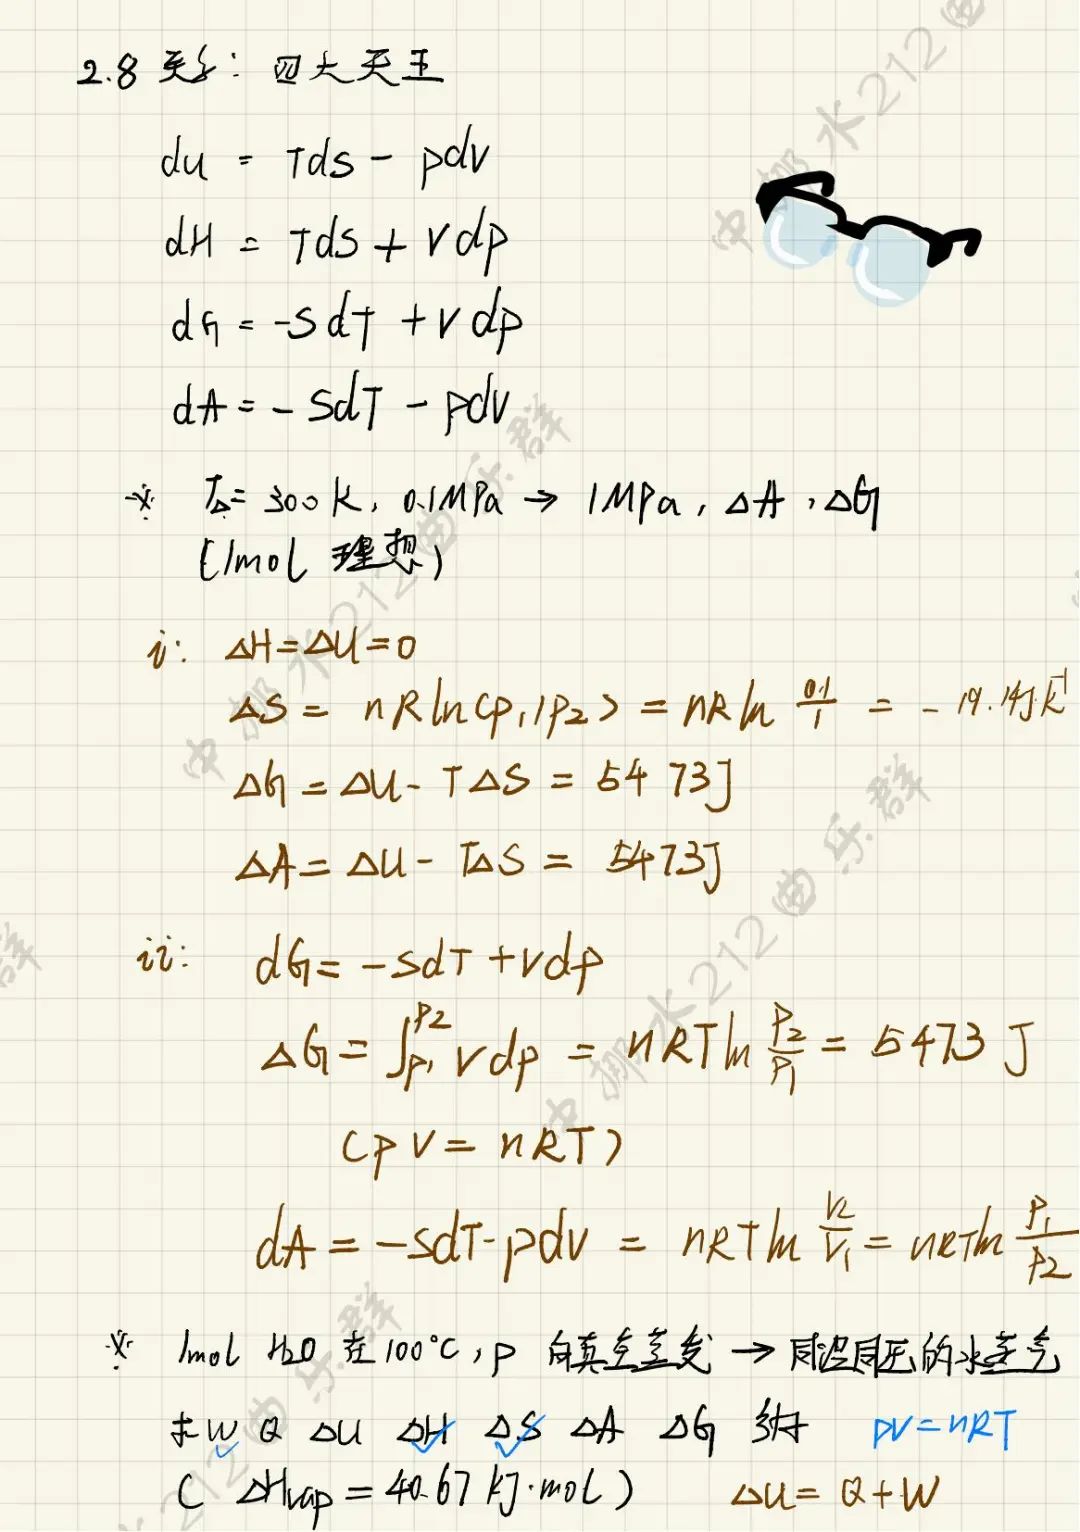 2.8 关系: 四大天王
dU = TdS - pdV
dH = TdS + Vdp
dG = -SdT + Vdp
dA = - SdT - pdV
※ T△= 300K, 0.1MPa → 1MPa, △A, △G
(1mol 理想)
i: △H=△U=0
△S = nRln(p1/p2) = nRln 0.1/1 = -19.14J·K⁻¹
△G = △U - T△S = 5473J
△A = △U - T△S = 5473J
ii: dG = -SdT + Vdp
△G = ∫p1^p2 Vdp = nRTln P2/P1 = 5473 J
(pV = nRT)
dA = -SdT-pdV = nRTln V2/V1 = nRTln P1/P2
※ 1mol H2O 在100°C, p 向真空蒸发 → 同温同压的水蒸气
求 W Q △U △H △S △A △G pV=nRT
( △Hvap = 40.67 kJ·mol) △U= Q+W
中 水212 乐群